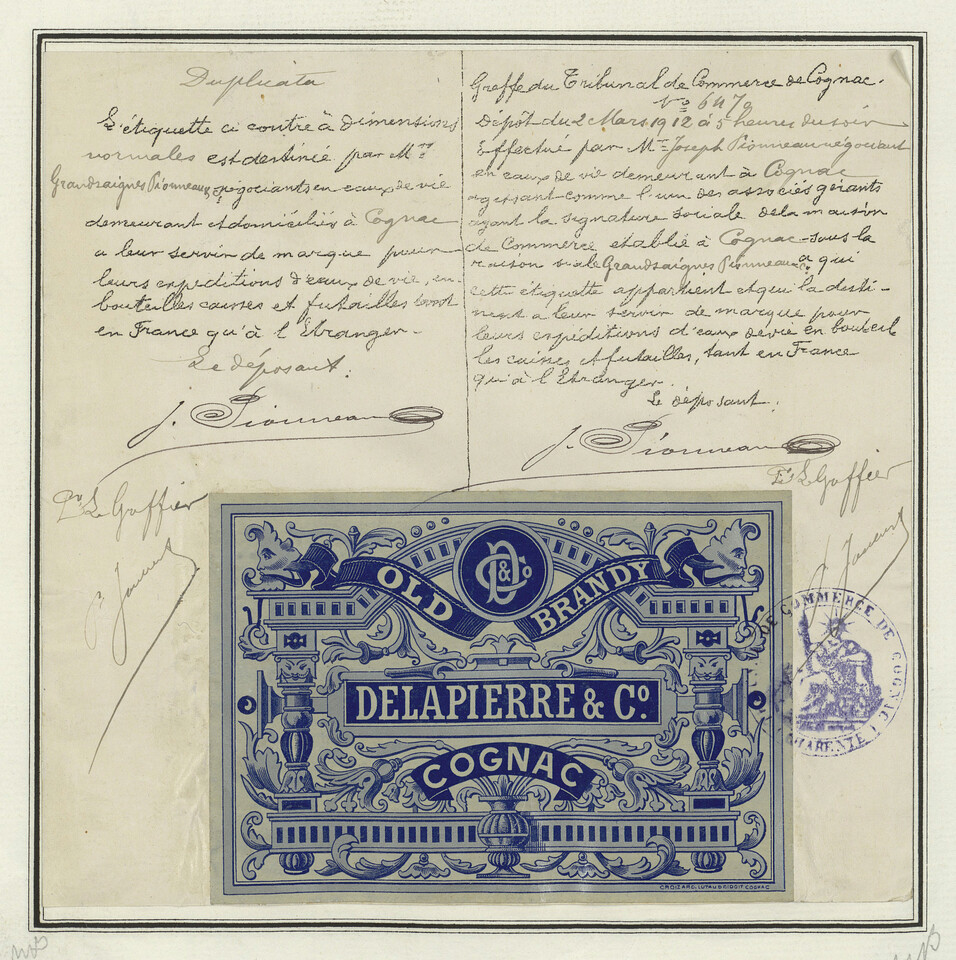 Duplicata
L'étiquette ci contre à dimensions
normales est destinée par Mrs
Grandsaignes Pionneau négociants en eaux de vie
demeurant et domiciliés à Cognac
a leur servir de marque pour
leurs expéditions d'eaux de vie, en
bouteilles caisses et futailles tant
en France qu'à l'Etranger.
Le déposant:
J. Pionneau
Pr Le Greffier
Greffe du Tribunal de Commerce de Cognac.
No 6470
Dépôt du 2 Mars 1912 à 5 heures du soir
Effectué par Mr Joseph Pionneau négociant
en eaux de vie demeurant à Cognac
agissant comme l'un des associés gérants
ayant la signature sociale de la maison
de Commerce établie à Cognac sous la
raison siale Grandsaignes Pionneau Co a qui
cette étiquette appartient et qui la desti-
nent a leur servir de marque pour
leurs expéditions d'eaux de vie en bouteil
les caisses et futailles, tant en France
qu'à l'Etranger.
Le déposant:
J. Pionneau
Pr Le Greffier
D & Co
OLD BRANDY
DELAPIERRE & Co.
COGNAC
DE COMMERCE DE COGNAC
CHARENTE